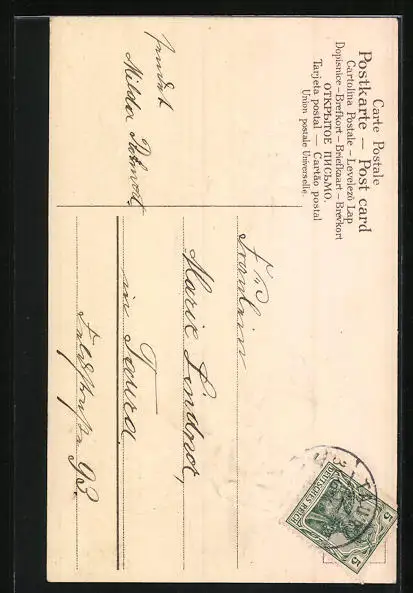 Carte Postale
Postkarte — Post card
Cartolina Postale – Levelező Lap
Dopisnice – Brefkort – Briefkaart – Brevkort
ОТКРЫТОЕ ПИСЬМО.
Tarjeta postal — Cartão postal
Union postale Universelle.
Milda
Fräulein
Marie Lindner,
in Taura
93.
TAURA
5
5
DEUTSCHES REICH